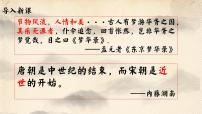 导入新课
节物风流，人情和美······古人有梦游华胥之国，
其乐无涯者，仆今追念，回首怅然，岂非华胥之
梦觉哉，目之曰《梦华录》。
——孟元老《东京梦华录》
唐朝是中世纪的结束，而宋朝是近
世的开始。
——内藤湖南